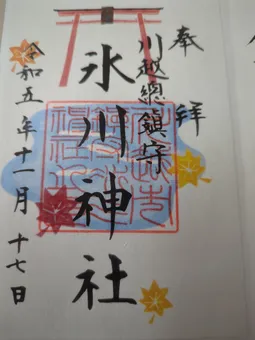 奉拝
川越總鎮守
氷川神社
令和五年十一月十七日